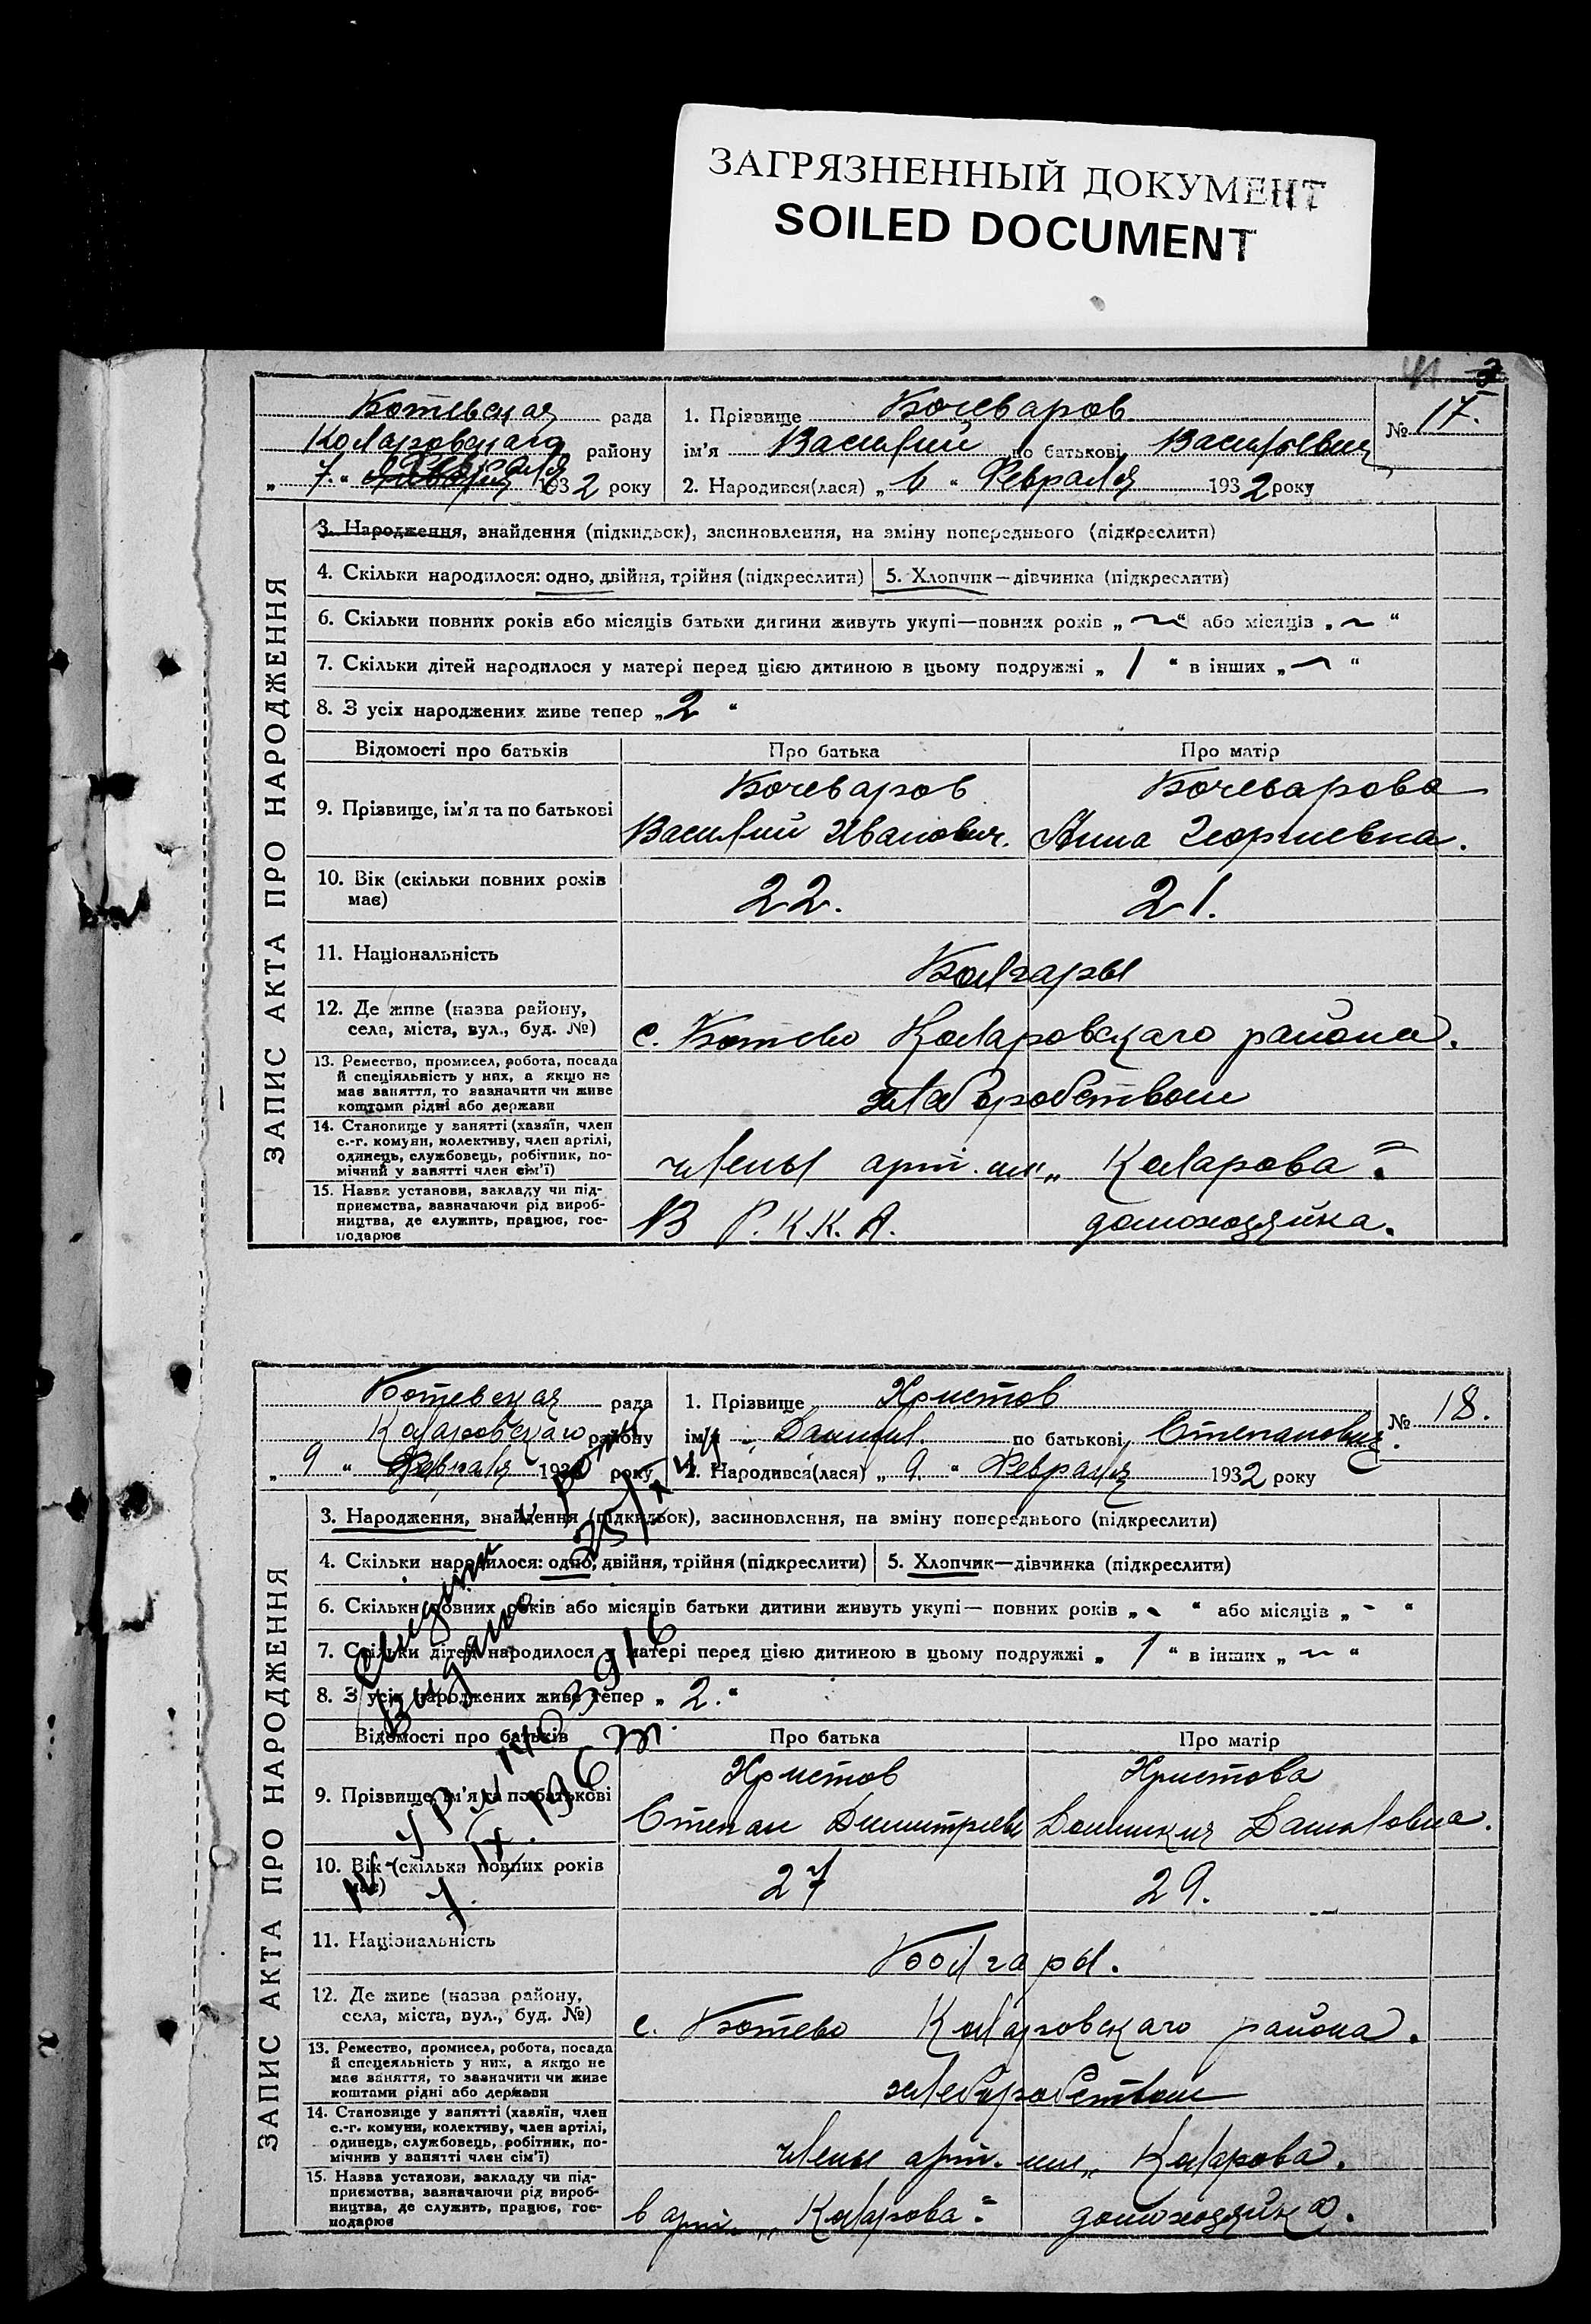 ЗАГРЯЗНЕННЫЙ ДОКУМЕНТ
SOILED DOCUMENT
41
Ботевская рада
Коларовского району
„ 7 “ Февраля 1932 року
1. Прізвище Бочеваров
ім’я Василий по батькові Васильевич
2. Народився(лася) „ 6 “ Февраля 1932 року
№ 17.
ЗАПИС АКТА ПРО НАРОДЖЕННЯ
3. Народження, знайдення (підкидьок), засиновлення, на зміну попереднього (підкреслити)
4. Скільки народилося: одно, двійня, трійня (підкреслити) 5. Хлопчик—дівчинка (підкреслити)
6. Скільки повних років або місяців батьки дитини живуть укупі—повних років „ ~ “ або місяців „ ~ “
7. Скільки дітей народилося у матері перед цією дитиною в цьому подружжі „ 1 “ в інших „ ~ “
8. З усіх народжених живе тепер „ 2 “
Відомості про батьків Про батька Про матір
9. Прізвище, ім’я та по батькові
Бочеваров Бочеварова
Василий Иванович. Анна Георгиевна.
10. Вік (скільки повних років має) 22. 21.
11. Національність Болгары
12. Де живе (назва району,
села, міста, вул., буд. №)
с. Ботево Коларовского района.
13. Ремество, промисел, робота, посада
й спеціяльність у них, а якщо не
має заняття, то зазначити чи живе
коштами рідні або держави
хлеборобством
14. Становище у занятті (хазяїн, член
с.-г. комуни, колективу, член артілі,
одинець, службовець, робітник, по-
мічний у занятті член сім’ї)
члены арт. им. „Коларова“.
15. Назва установи, закладу чи під-
приємства, зазначаючи рід вироб-
ництва, де служить, працює, гос-
подарює
В Р.К.К.А. домохозяйка.
Ботевская рада
Коларовского району
„ 9 “ Февраля 1932 року
1. Прізвище Христов
ім’я Даниил по батькові Степанович.
2. Народився(лася) „ 9. “ Февраля 1932 року
№ 18.
ЗАПИС АКТА ПРО НАРОДЖЕННЯ
3. Народження, знайдення (підкидьок), засиновлення, на зміну попереднього (підкреслити)
4. Скільки народилося: одно, двійня, трійня (підкреслити) 5. Хлопчик—дівчинка (підкреслити)
6. Скільки повних років або місяців батьки дитини живуть укупі— повних років „ - “ або місяців „ - “
7. Скільки дітей народилося у матері перед цією дитиною в цьому подружжі „ 1 “ в інших „ ~ “
8. З усіх народжених живе тепер „ 2. “
Відомості про батьків Про батька Про матір
9. Прізвище, ім’я та по батькові
Христов Христова
Степан Димитриев Даниловна.
10. Вік (скільки повних років має) 27 29.
11. Національність Болгары.
12. Де живе (назва району,
села, міста, вул., буд. №)
с. Ботево Коларовского района.
13. Ремество, промисел, робота, посада
й спецеяльність у них, а якщо не
має заняття, то зазначити чи живе
коштами рідні або держави
хлеборобством
14. Становище у занятті (хазяїн, член
с.-г. комуни, колективу, член артілі,
одинець, службовець, робітник, по-
мічник у занятті член сім’ї)
члены арт. им. „Коларова.
15. Назва установи, закладу чи під-
приємства, зазначаючи рід вироб-
ництва, де служить, працює, гос-
подарює
в арт. „Коларова“ домохозяйка.